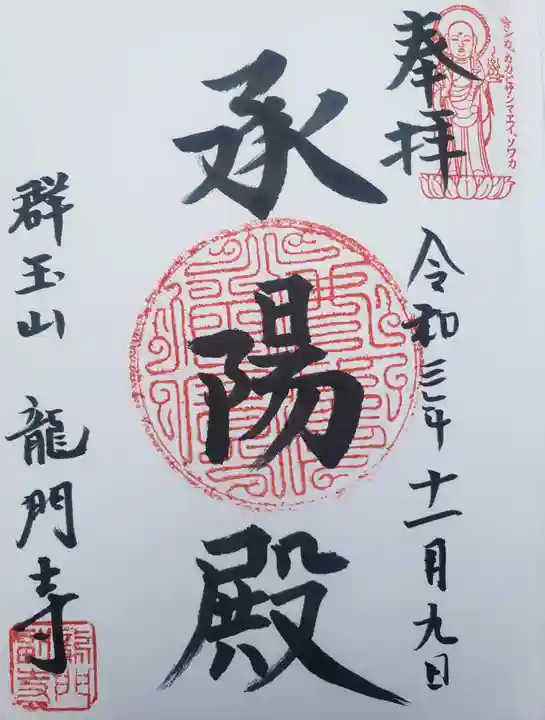 奉拝
オンカ、カカビサンマエイ、ソワカ
令和三年十一月九日
承陽殿
群玉山 龍門寺
龍門